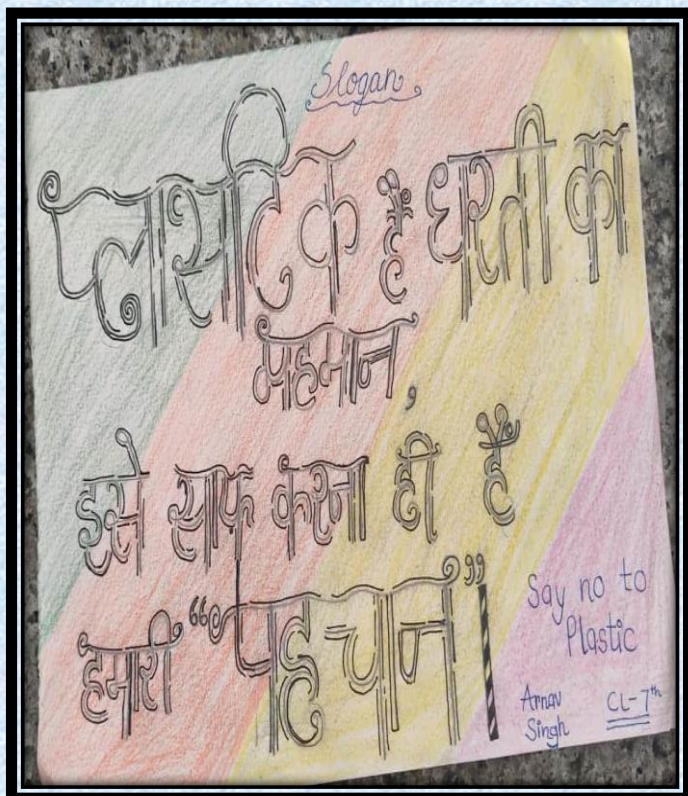 Slogan
प्लासटिक है धरती का
महमान,
इसे साफ करना ही है
हमारी “पहचान”।
Say no to
Plastic
Arnav
Singh
CL-7th